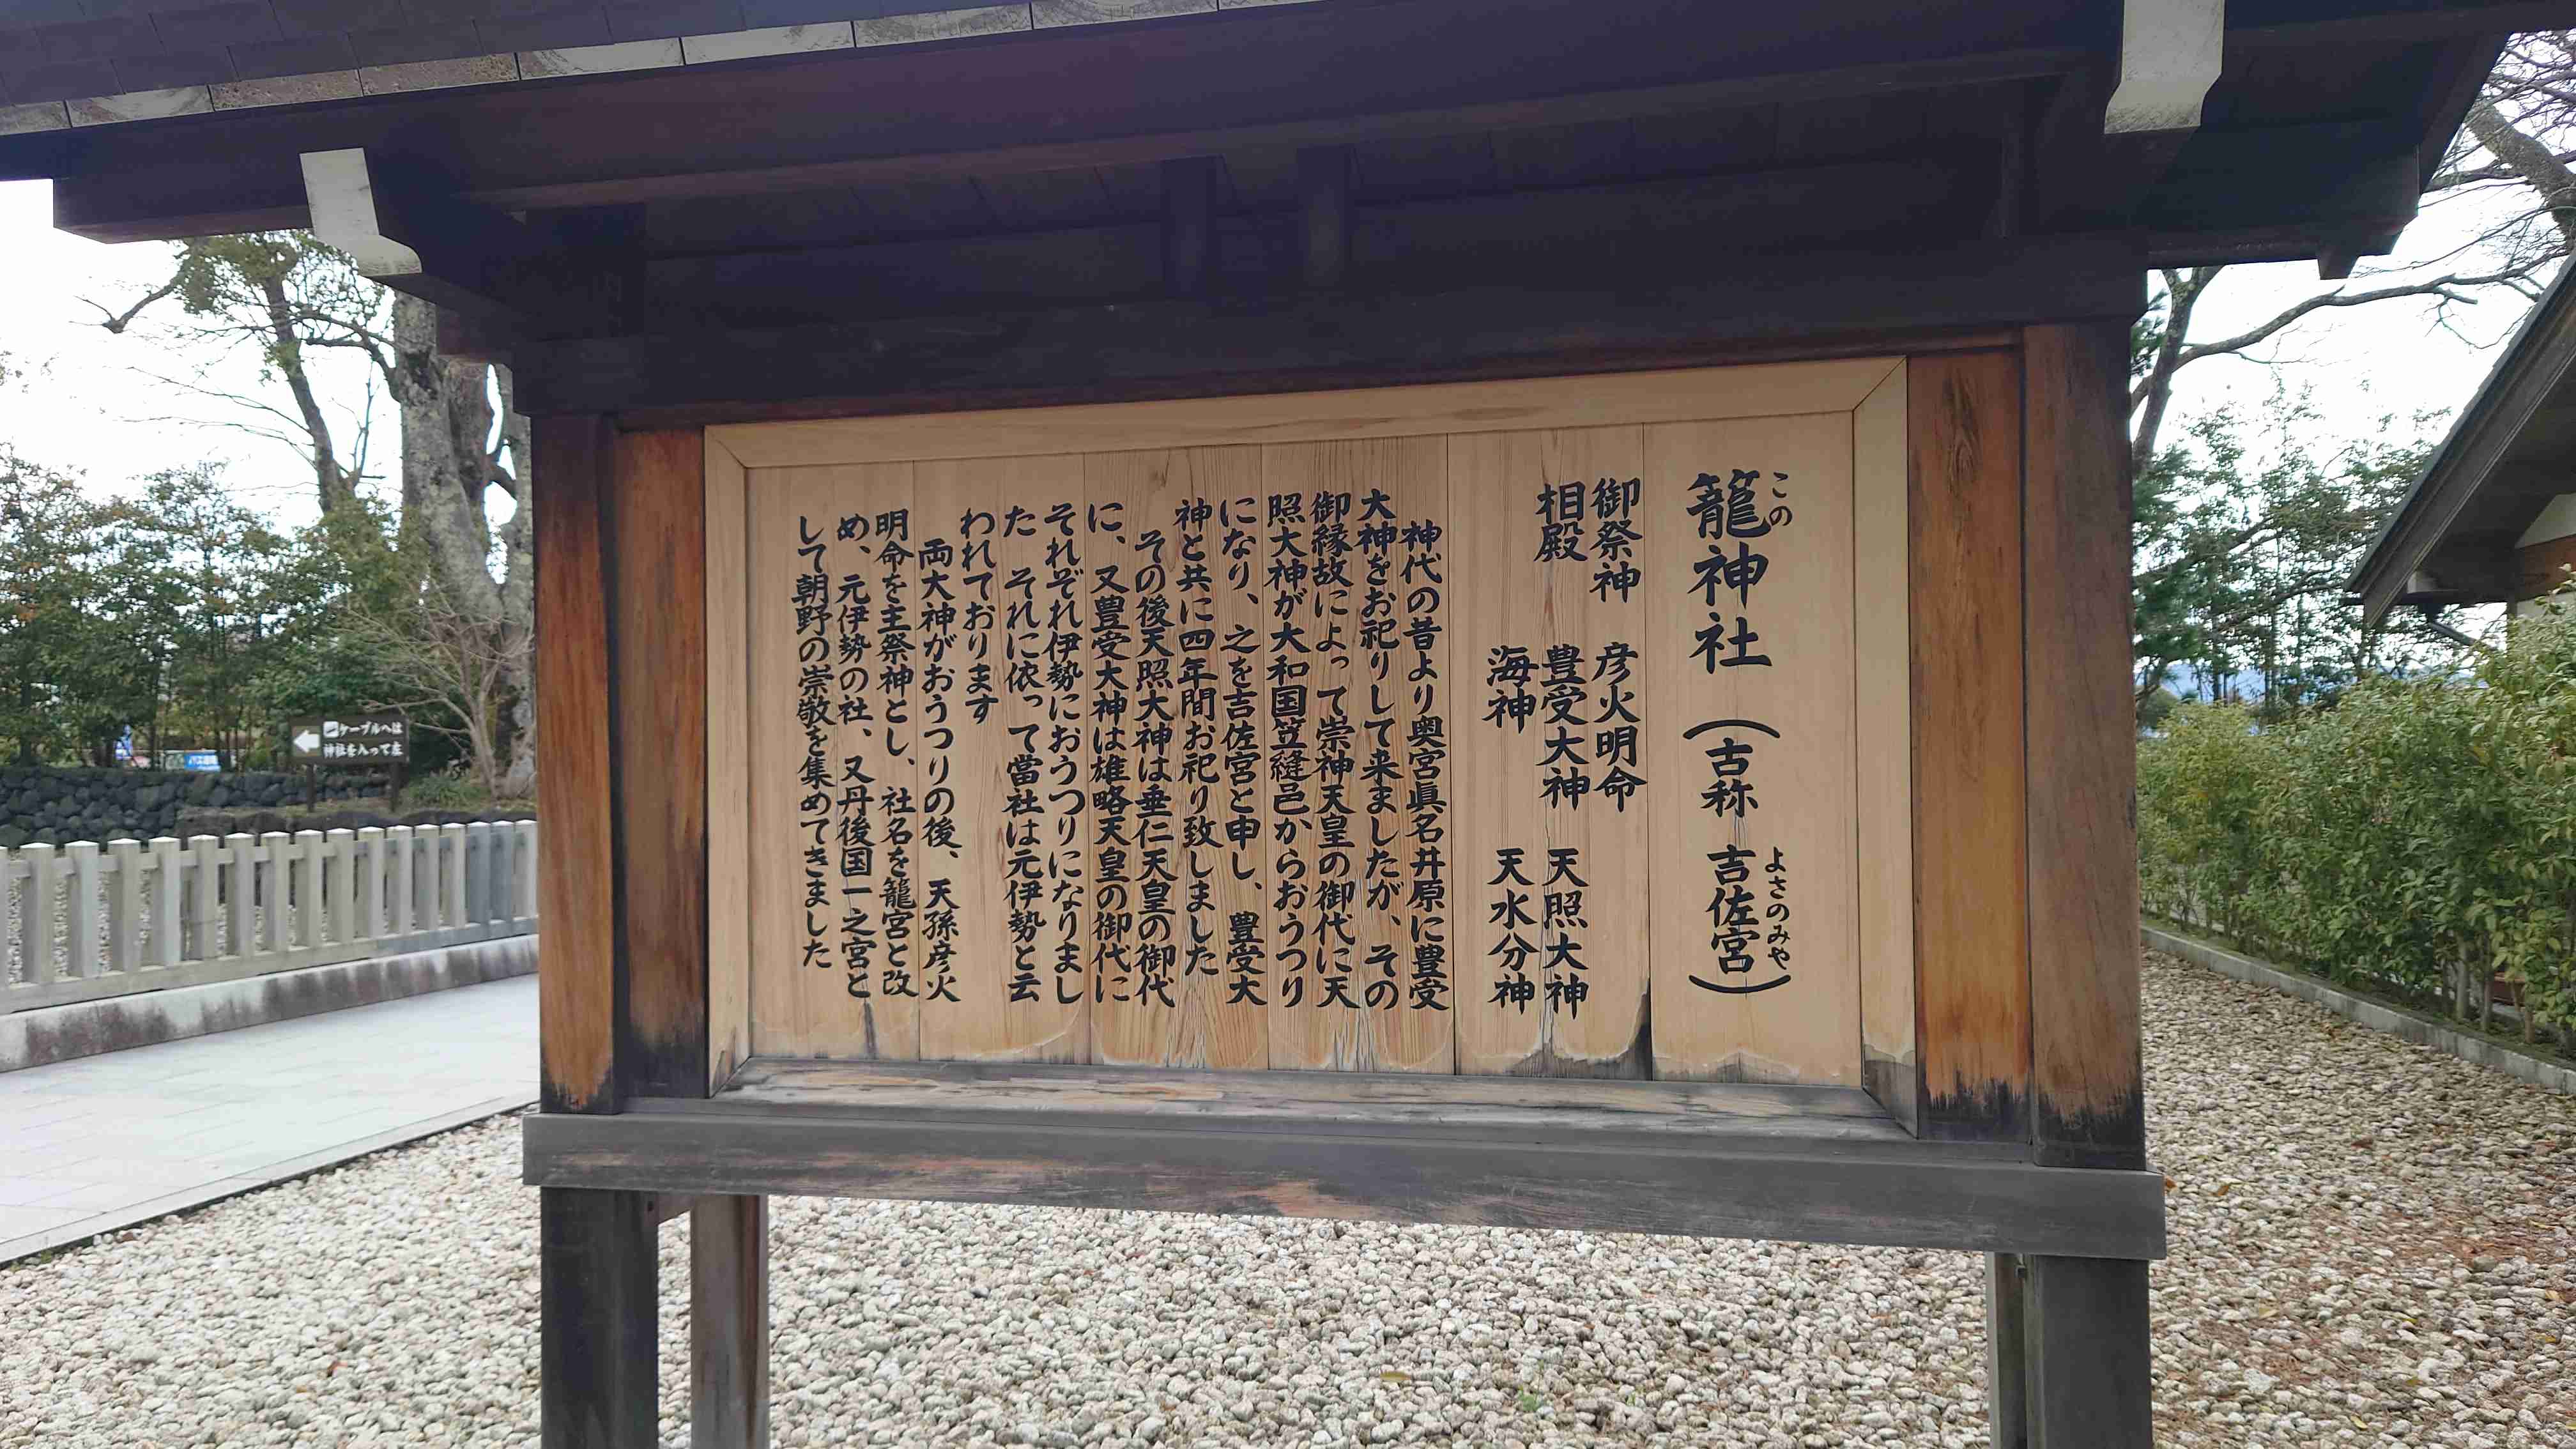 籠神社（古称 吉佐宮）
この
よさのみや
御祭神 彦火明命
相殿 豊受大神 天照大神
海神 天水分神
神代の昔より奥宮眞名井原に豊受
大神をお祀りして来ましたが、その
御縁故によって崇神天皇の御代に天
照大神が大和国笠縫邑からおうつり
になり、之を吉佐宮と申し、豊受大
神と共に四年間お祀り致しました
その後天照大神は垂仁天皇の御代
に、又豊受大神は雄略天皇の御代に
それぞれ伊勢におうつりになりまし
た それに依って當社は元伊勢と云
われております
両大神がおうつりの後、天孫彦火
明命を主祭神とし、社名を籠宮と改
め、元伊勢の社、又丹後国一之宮と
して朝野の崇敬を集めてきました
ケーブルへは
神社を入って左